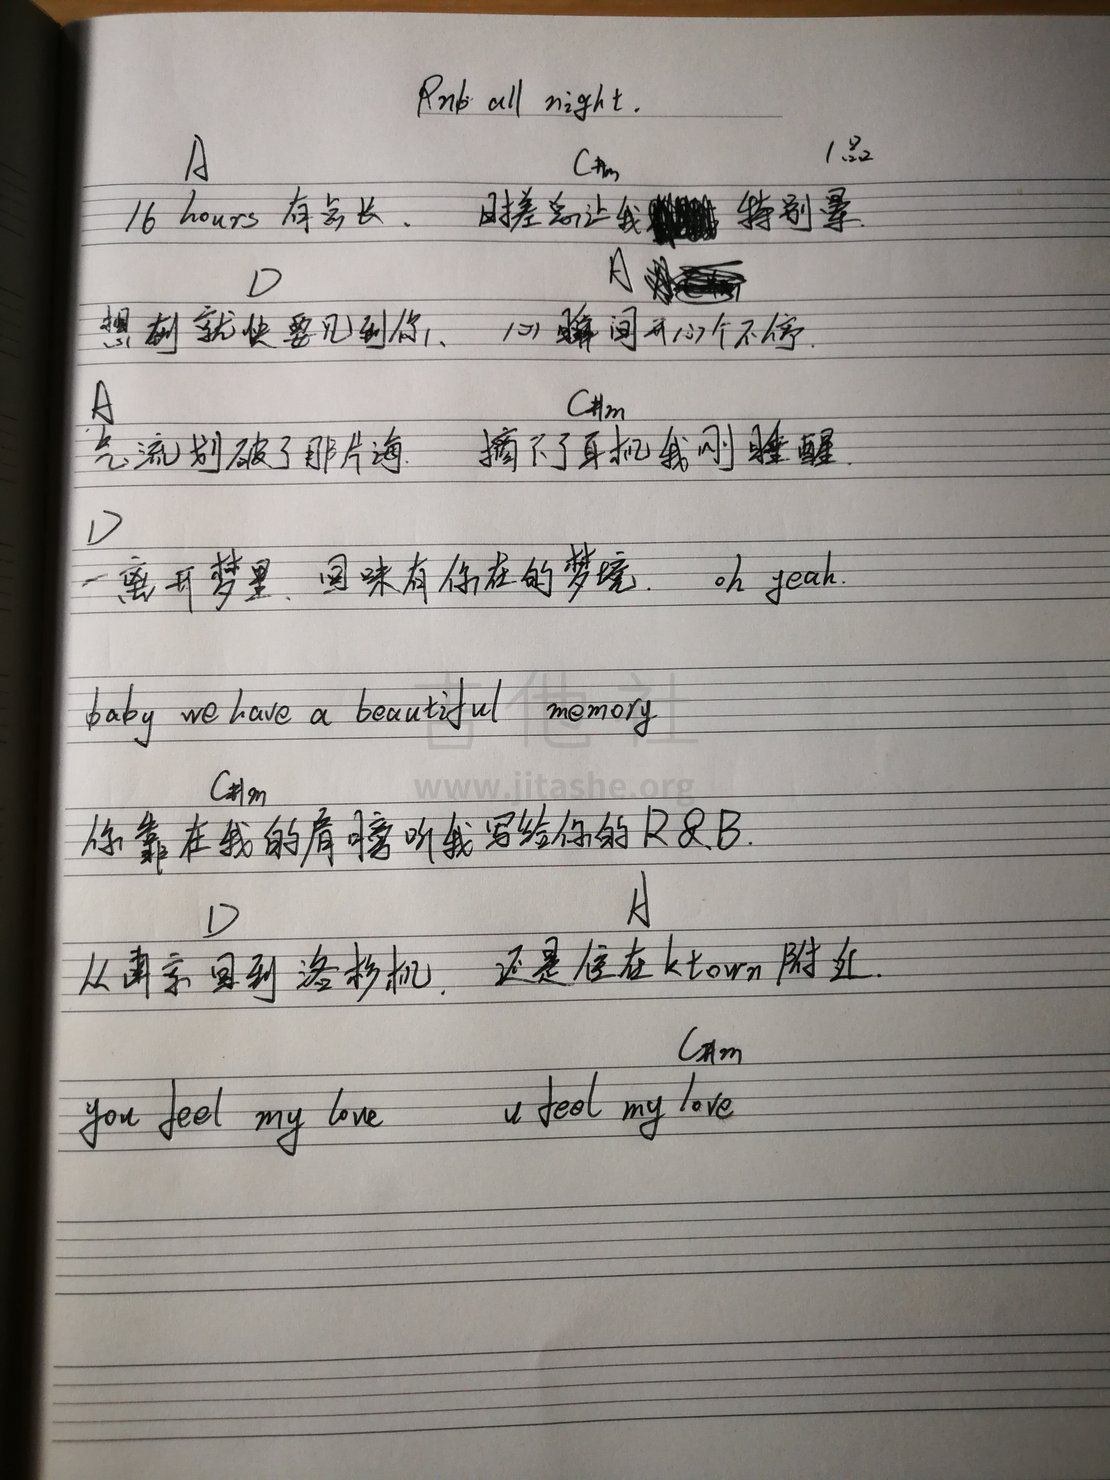 Rnb all night.
A C#m 1品
16 hours 有多长、 时差总让我 特别晕.
D A
想到就快要见到你、 心瞬间开心个不停.
A C#m
气流划破了那片海. 摘下了耳机我刚睡醒.
D
一离开梦里、回味有你在的梦境. oh yeah.
吉他社
baby we have a beautiful memory
www.jitashe.org
C#m
你靠在我的肩膀听我写给你的R&B.
D A
从南京回到洛杉矶. 还是住在ktown附近.
C#m
you feel my love u feel my love